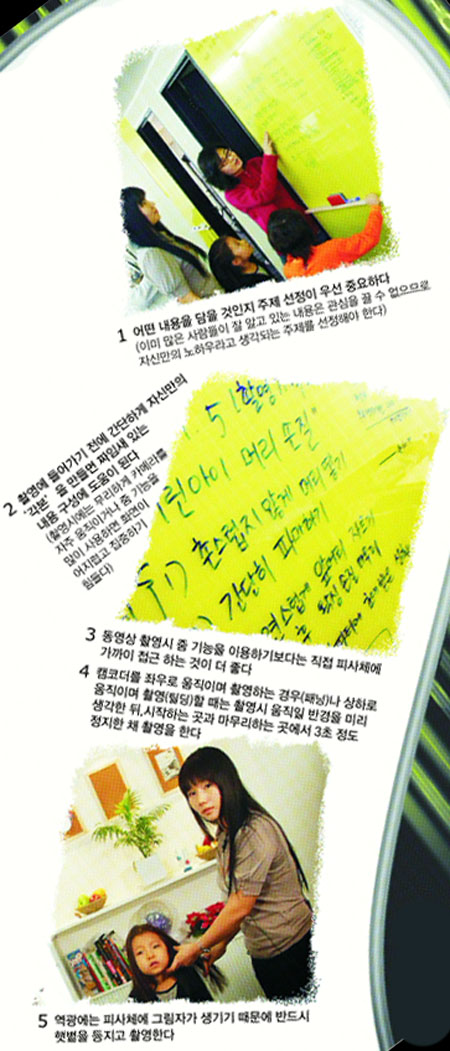 1 어떤 내용을 담을 것인지 주제 선정이 우선 중요하다
(이미 많은 사람들이 잘 알고 있는 내용은 관심을 끌 수 없으므로
자신만의 노하우라고 생각되는 주제를 선정해야 한다)
2 촬영에 들어가기 전에 간단하게 자신만의
‘각본’을 만들면 짜임새 있는
내용 구성에 도움이 된다
(촬영시에는 무리하게 카메라를
자주 움직이거나 줌 기능을
많이 사용하면 화면이
어지럽고 집중하기
힘들다)
5 (촬영
린아이 머리 손질"
촌스럽지 않게 머리 묶기
간단히 파마하기
앞머리 자르기
3 동영상 촬영시 줌 기능을 이용하기보다는 직접 피사체에
가까이 접근 하는 것이 더 좋다
4 캠코더를 좌우로 움직이며 촬영하는 경우(패닝)나 상하로
움직이며 촬영(틸딩)할 때는 촬영시 움직일 반경을 미리
생각한 뒤, 시작하는 곳과 마무리하는 곳에서 3초 정도
정지한 채 촬영을 한다
5 역광에는 피사체에 그림자가 생기기 때문에 반드시
햇볕을 등지고 촬영한다